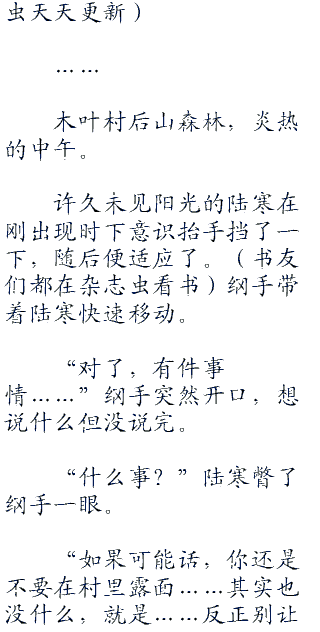 虫天天更新）
……
木叶村后山森林，炎热
的中午。
许久未见阳光的陆寒在
刚出现时下意识抬手挡了一
下，随后便适应了。（书友
们都在杂志虫看书）纲手带
着陆寒快速移动。
“对了，有件事
情……”纲手突然开口，想
说什么但没说完。
“什么事？”陆寒瞥了
纲手一眼。
“如果可能话，你还是
不要在村里露面……其实也
没什么，就是……反正别让